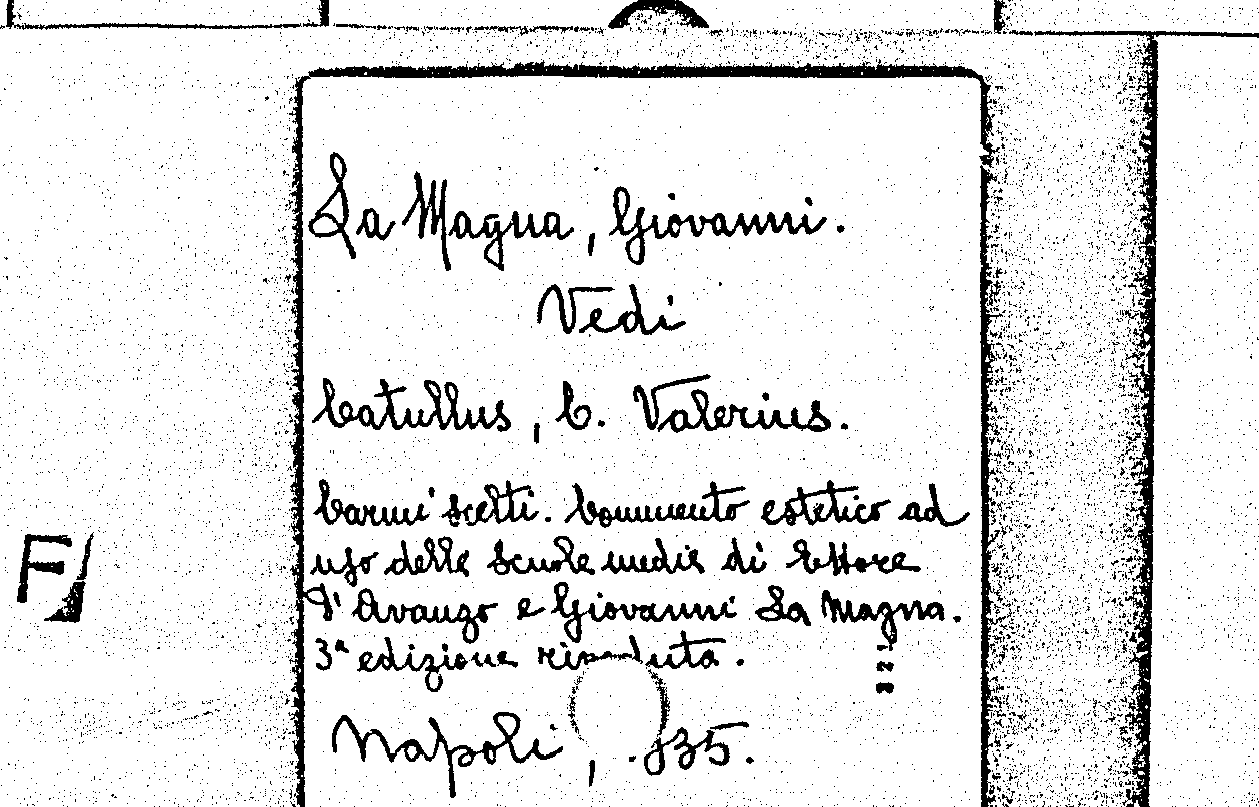 La Magna, Giovanni.
Vedi
Catullus, C. Valerius.
Carmi scelti. Commento estetico ad
uso delle scuole medie di Ettore
D'Avanzo e Giovanni La Magna.
3ª edizione riveduta.
Napoli, 1935.
F